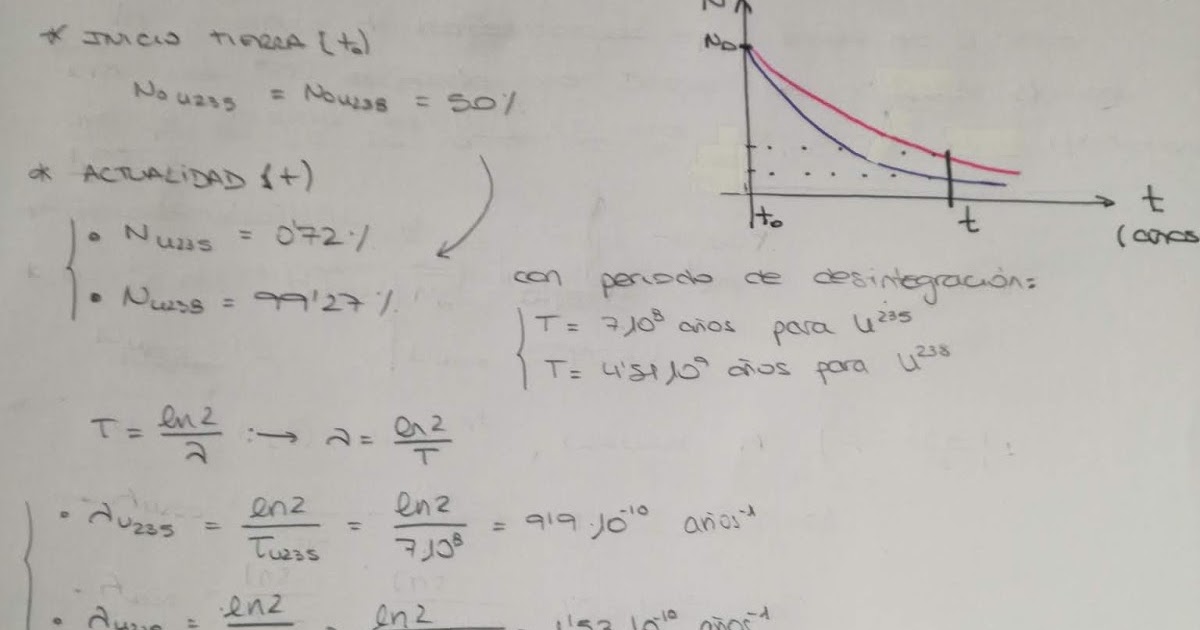 * INICIO TIERRA (t₀)
N₀ U235 = N₀ U238 = 50%
* ACTUALIDAD (t)
• N U235 = 0'72%
• N U238 = 99'27%
N
N₀
t₀
t
t
(años
con periodo de desintegración:
T = 7·10⁸ años para U²³⁵
T = 4'51·10⁹ años para U²³⁸
T = ln2/λ :→ λ = ln2/T
• λ U235 = ln2/T U235 = ln2/7·10⁸ = 9'9·10⁻¹⁰ años⁻¹
• λ = ln2 = ln2 1'53·10⁻¹⁰ años⁻¹